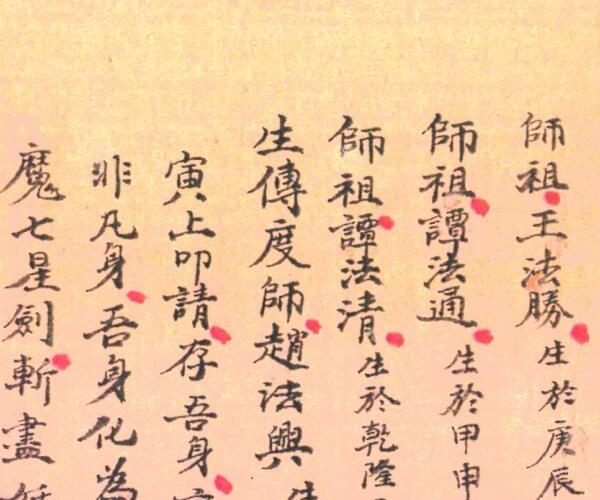 師祖王法勝生於庚辰
師祖譚法通生於甲申
師祖譚法清生於乾隆
生傳度師趙法興生
寅上叩請存吾身
非凡身吾身化為
魔七星劍斬盡